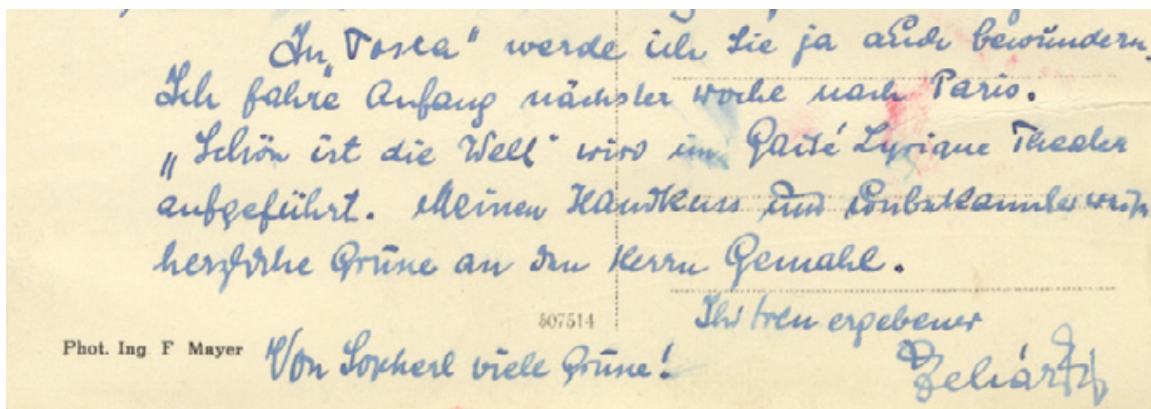 In „Tosca“ werde ich Sie ja auch bewundern.
Ich fahre Anfang nächster Woche nach Paris.
„Schön ist die Welt“ wird im Gaité Lyrique Theater
aufgeführt. Meinen Handkuss und unbekannterweise
herzliche Grüße an den Herrn Gemahl.
507514
Ihr treu ergebener
Phot. Ing F Mayer
Von viele Grüße!
Lehár